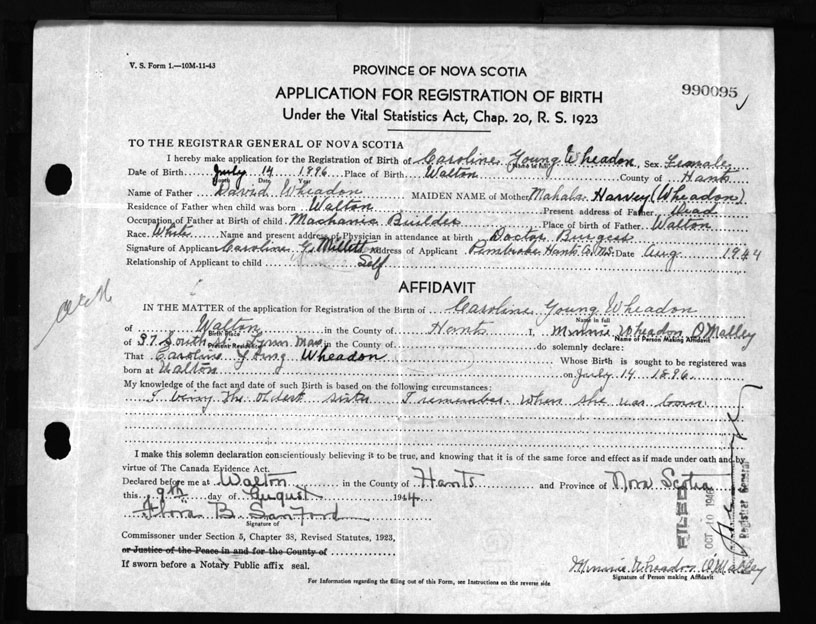 V. S. Form 1.—10M-11-43
PROVINCE OF NOVA SCOTIA
990095
APPLICATION FOR REGISTRATION OF BIRTH
Under the Vital Statistics Act, Chap. 20, R. S. 1923
TO THE REGISTRAR GENERAL OF NOVA SCOTIA
I hereby make application for the Registration of Birth of Caroline Young Wheadon, Sex Female
Name in full
Date of Birth July 14 1896 Place of Birth Walton County of Hants
Month Date Year
Name of Father David Wheadon MAIDEN NAME of Mother Mahala Harvey (Wheadon)
Residence of Father when child was born Walton Present address of Father Dead
Occupation of Father at Birth of child Machanic Builder Place of birth of Father Walton
Race White Name and present address of Physician in attendance at birth Doctor Burgess
Signature of Applicant Caroline Y. Millett Address of Applicant Pembroke Hants Co N.S. Date Aug 1944
Relationship of Applicant to child Self
AFFIDAVIT
IN THE MATTER of the application for Registration of the Birth of Caroline Young Wheadon
Name in full
of Walton in the County of Hants I, Minnie Wheadon O'Malley
Birth Place Name of Person Making Affidavit
of 37 South St Lynn Mass in the County of do solemnly declare:
Present Residence
That Caroline Young Wheadon Whose Birth is sought to be registered was
born at Walton on July 14 1896.
My knowledge of the fact and date of such Birth is based on the following circumstances:
I being the oldest sister I remember when she was born
I make this solemn declaration conscientiously believing it to be true, and knowing that it is of the same force and effect as if made under oath and by
virtue of The Canada Evidence Act.
Declared before me at Walton in the County of Hants and Province of Nova Scotia
this 9th day of August 1944
Flora B. Sanford
Signature of
Commissoner under Section 5, Chapter 38, Revised Statutes, 1923,
or Justice of the Peace in and for the County of
If sworn before a Notary Public affix seal.
Minnie Wheadon O'Malley
Signature of Person making Affidavit
For Information regarding the filling out of this Form, see Instructions on the reverse side
FILED
OCT 10 1946
Registrar General